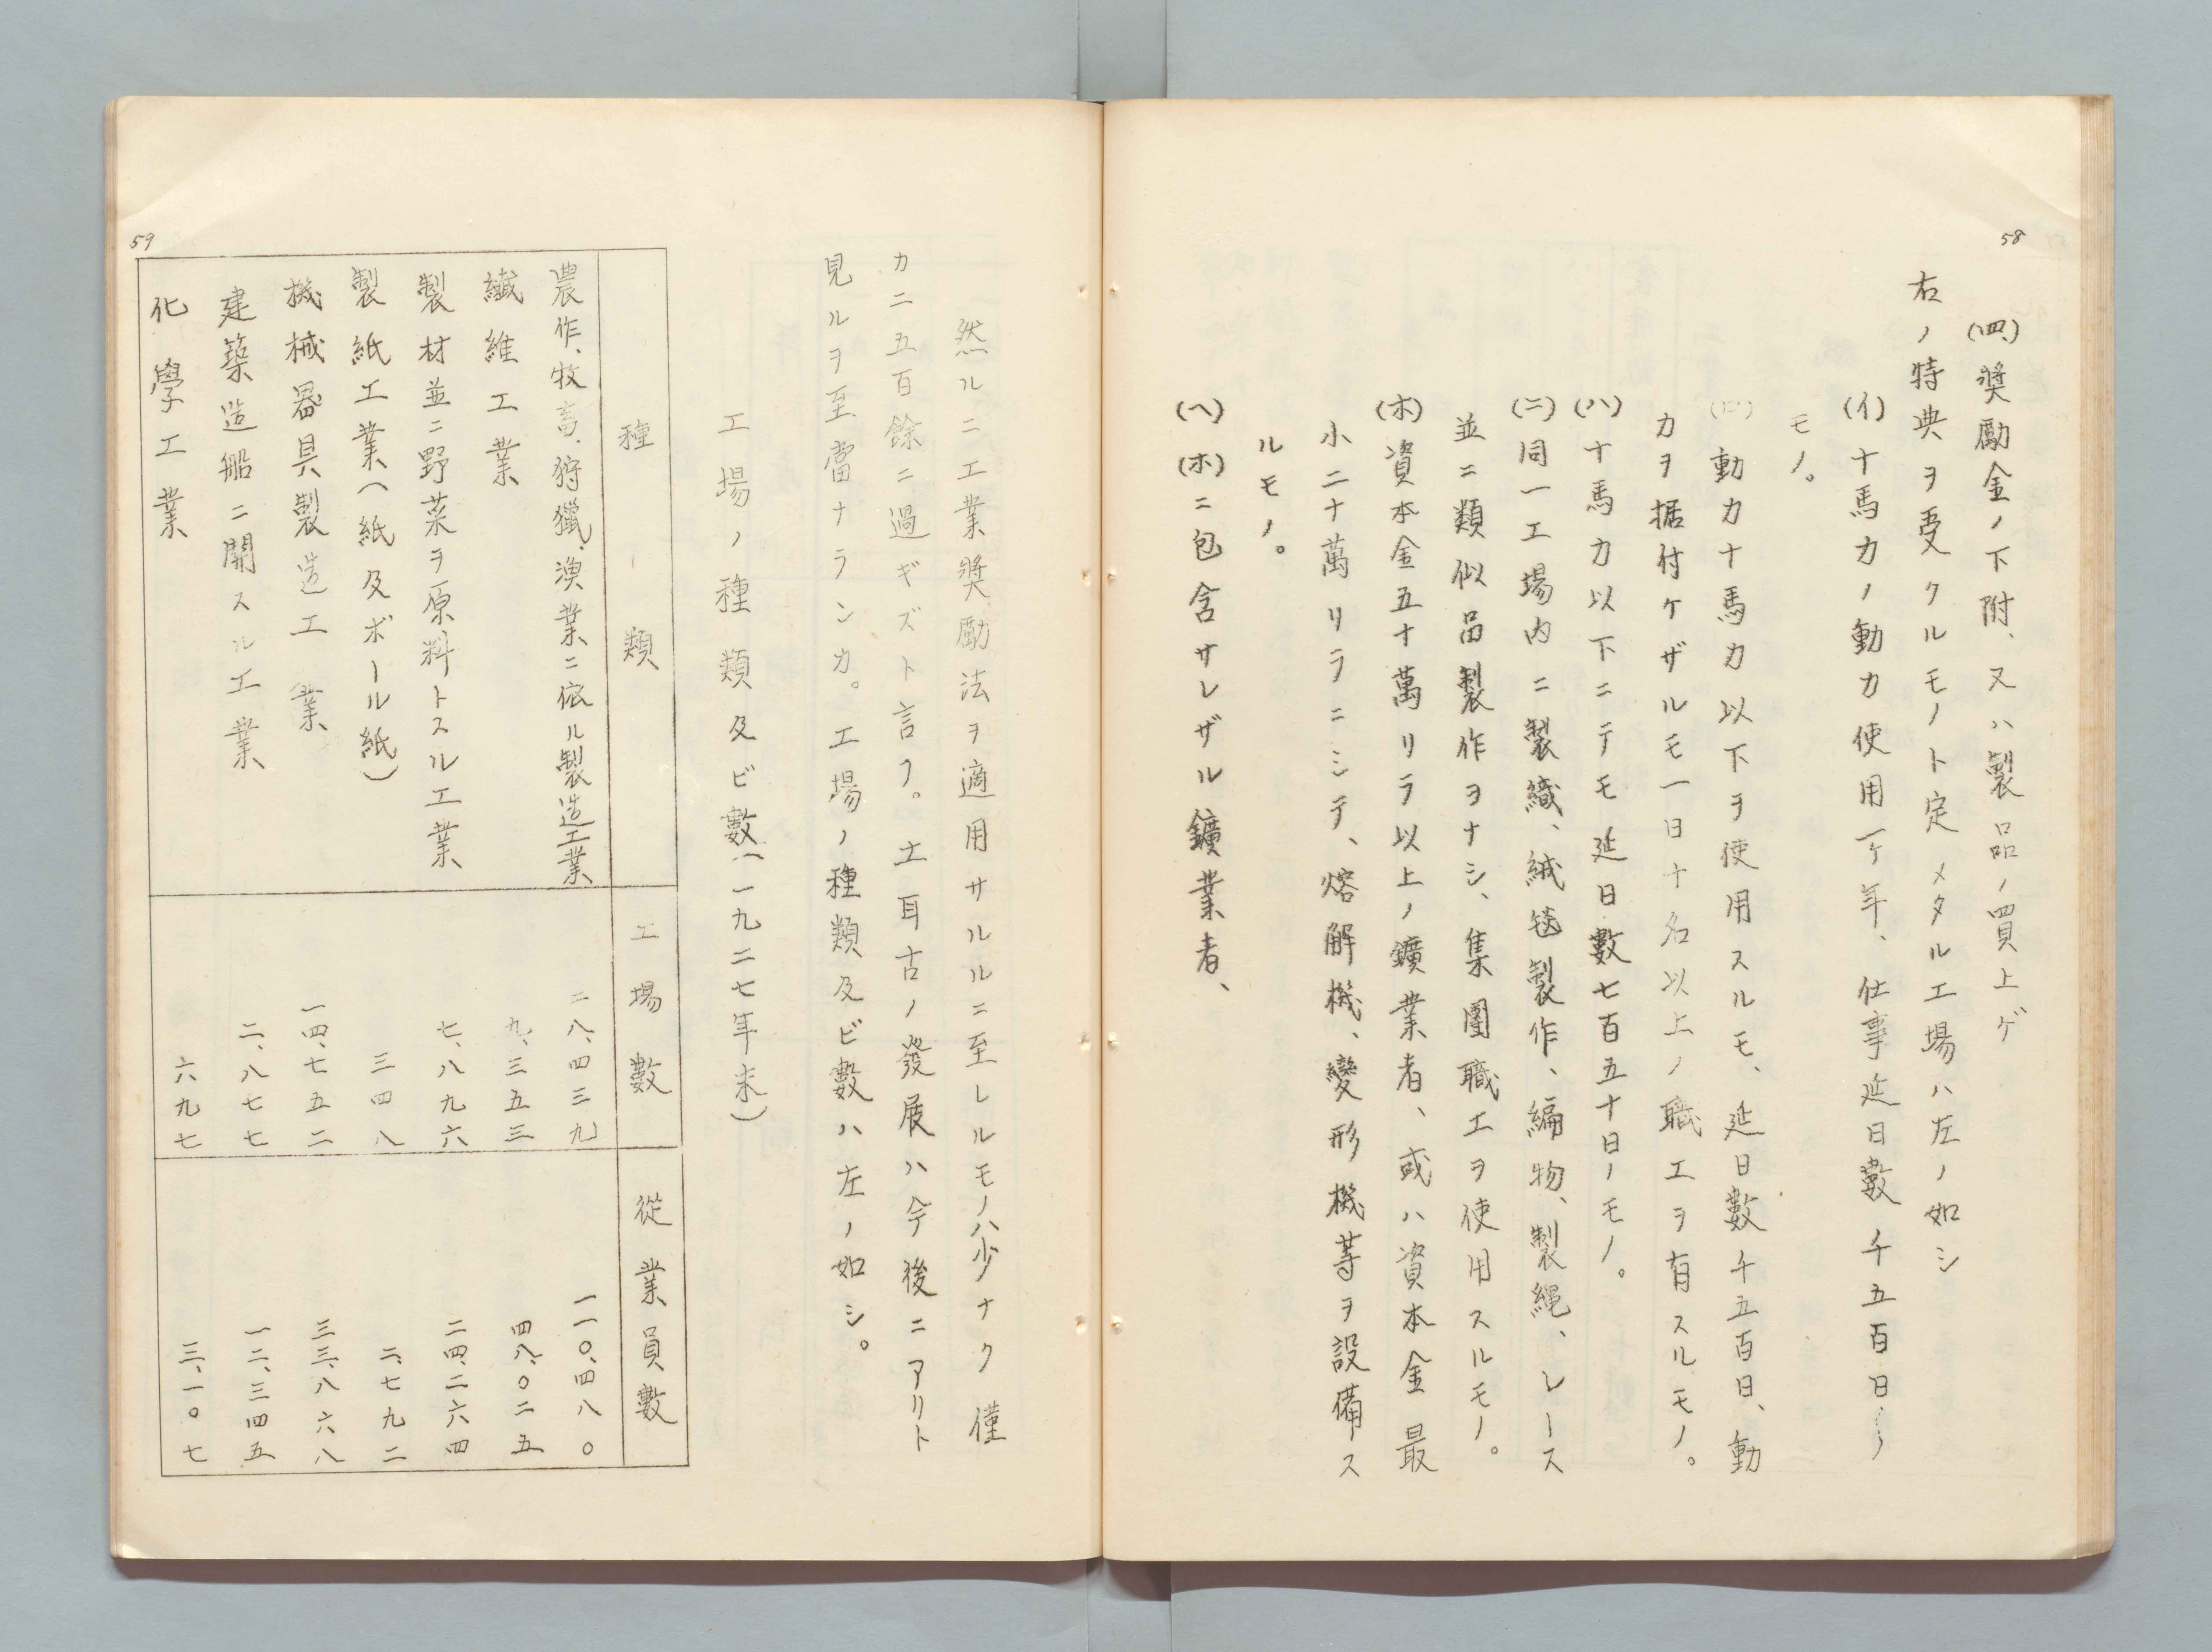 58
(四)奬勵金ノ下附、又ハ製品ノ買上ゲ
右ノ特典ヲ受クルモノト定メタル工場ハ左ノ如シ
(イ)十馬力ノ動力使用一ケ年、仕事延日數千五百日ノ
モノ。
(ロ)動力十馬力以下ヲ使用スルモ、延日數千五百日、動
力ヲ据付ケザルモ一日十名以上ノ職工ヲ有スルモノ。
(ハ)十馬力以下ニテモ延日數七百五十日ノモノ。
(ニ)同一工場内ニ製織、絨毯製作、編物、製繩、レース
並ニ類似品製作ヲナシ、集團職工ヲ使用スルモノ。
(ホ)資本金五十萬リラ以上ノ鑛業者、或ハ資本金最
小二十萬リラニシテ、熔解機、變形機等ヲ設備ス
ルモノ。
(ヘ)(ホ)ニ包含サレザル鑛業者、
然ルニ工業奬勵法ヲ適用サルルニ至レルモノハ少ナク僅
カニ五百餘ニ過ギズト言フ。土耳古ノ發展ハ今後ニアリト
見ルヲ至當ナランカ。工場ノ種類及ビ數ハ左ノ如シ。
工場ノ種類及ビ數(一九二七年末)
種類 工場數 從業員數
農作、牧畜、狩獵、漁業ニ依ル製造工業 二八、四三九 一一〇、四八〇
纎維工業 九、三五三 四八、〇二五
製材並ニ野菜ヲ原料トスル工業 七、八九六 二四、二六四
製紙工業(紙及ボール紙) 三四八 二、七九二
機械器具製造工業 一四、七五二 三三、八六八
建築造船ニ關スル工業 二、八七七 一二、三四五
化學工業 六九七 三、一〇七
59